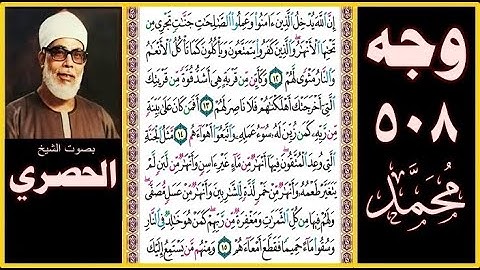 وجه
٥٠٨
مُحَمَّد
إِنَّ ٱللَّهَ يُدْخِلُ ٱلَّذِينَ ءَامَنُوا۟ وَعَمِلُوا۟ ٱلصَّٰلِحَٰتِ جَنَّٰتٍ تَجْرِى مِن
تَحْتِهَا ٱلْأَنْهَٰرُ وَٱلَّذِينَ كَفَرُوا۟ يَتَمَتَّعُونَ وَيَأْكُلُونَ كَمَا تَأْكُلُ ٱلْأَنْعَٰمُ
وَٱلنَّارُ مَثْوًى لَّهُمْ ١٢ وَكَأَيِّن مِّن قَرْيَةٍ هِىَ أَشَدُّ قُوَّةً مِّن قَرْيَتِكَ
ٱلَّتِىٓ أَخْرَجَتْكَ أَهْلَكْنَٰهُمْ فَلَا نَاصِرَ لَهُمْ ١٣ أَفَمَن كَانَ عَلَىٰ بَيِّنَةٍ
مِّن رَّبِّهِۦ كَمَن زُيِّنَ لَهُۥ سُوٓءُ عَمَلِهِۦ وَٱتَّبَعُوٓا۟ أَهْوَآءَهُم ١٤ مَّثَلُ ٱلْجَنَّةِ
ٱلَّتِى وُعِدَ ٱلْمُتَّقُونَ فِيهَآ أَنْهَٰرٌ مِّن مَّآءٍ غَيْرِ ءَاسِنٍ وَأَنْهَٰرٌ مِّن لَّبَنٍ لَّمْ
يَتَغَيَّرْ طَعْمُهُۥ وَأَنْهَٰرٌ مِّنْ خَمْرٍ لَّذَّةٍ لِّلشَّٰرِبِينَ وَأَنْهَٰرٌ مِّنْ عَسَلٍ مُّصَفًّى
وَلَهُمْ فِيهَا مِن كُلِّ ٱلثَّمَرَٰتِ وَمَغْفِرَةٌ مِّن رَّبِّهِمْ كَمَنْ هُوَ خَٰلِدٌ فِى ٱلنَّارِ
وَسُقُوا۟ مَآءً حَمِيمًا فَقَطَّعَ أَمْعَآءَهُمْ ١٥ وَمِنْهُم مَّن يَسْتَمِعُ إِلَيْكَ
بصوت الشيخ
الحصري